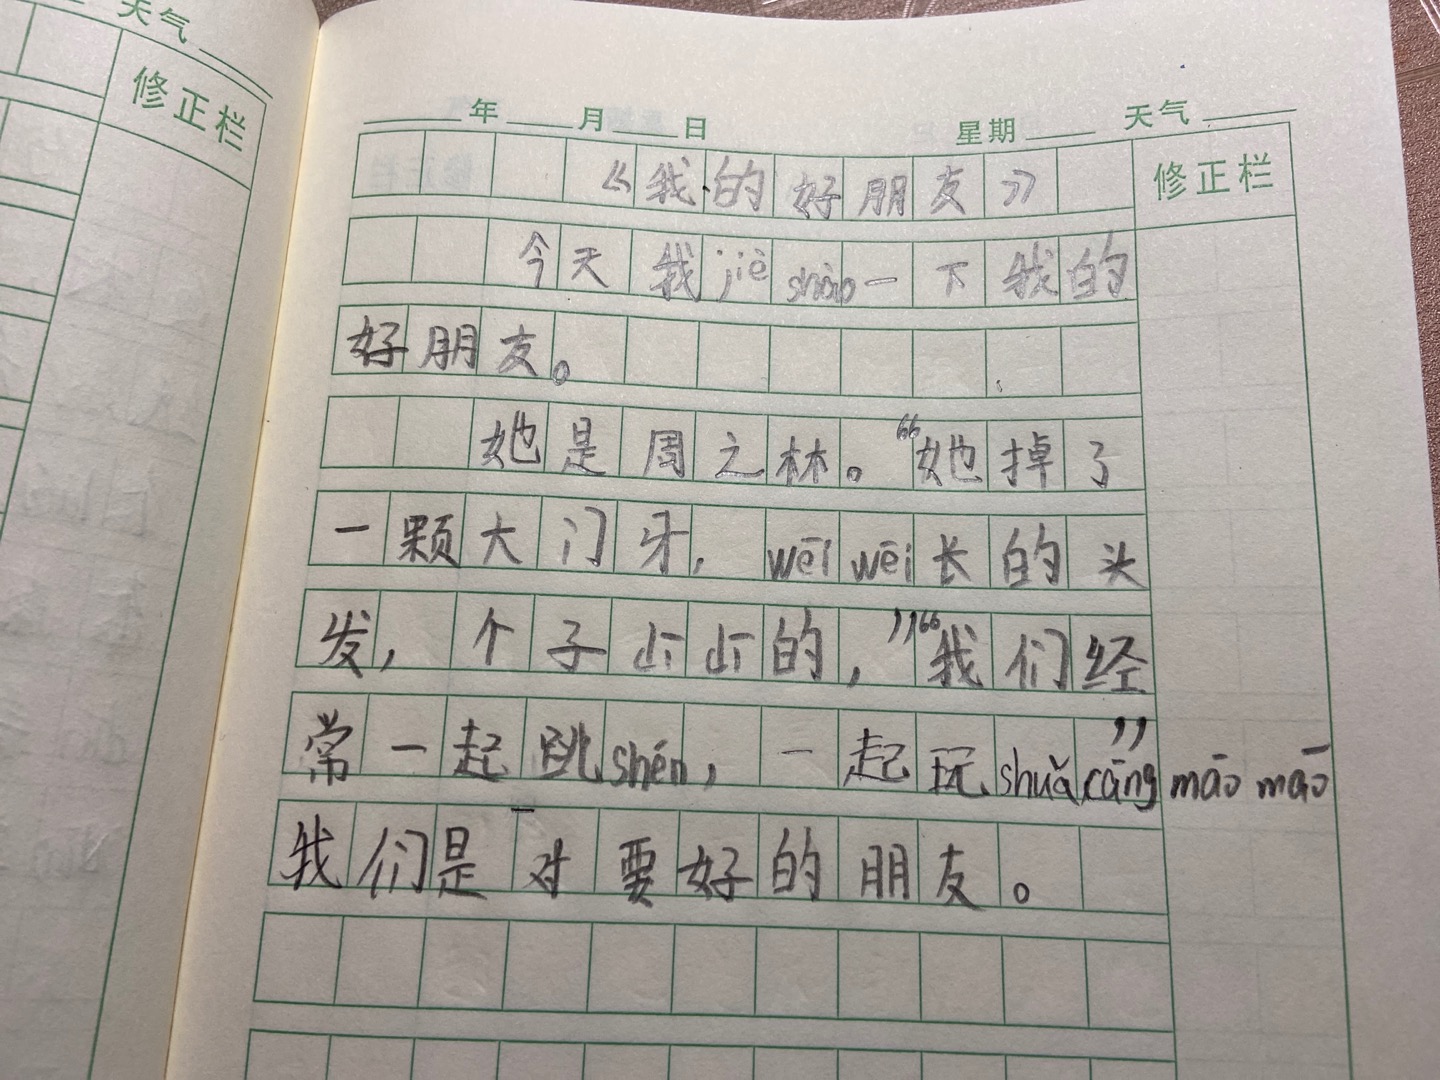 天气
修正栏
年 月 日 星期 天气
《我的好朋友》
修正栏
今天我jiè shào一下我的
好朋友。
她是周之林。“她掉了
一颗大门牙，wēi wēi长的头
发，个子占占的，”“我们经
常一起跳shén，一起玩shuǎ cāng māo māo”
我们是一对要好的朋友。